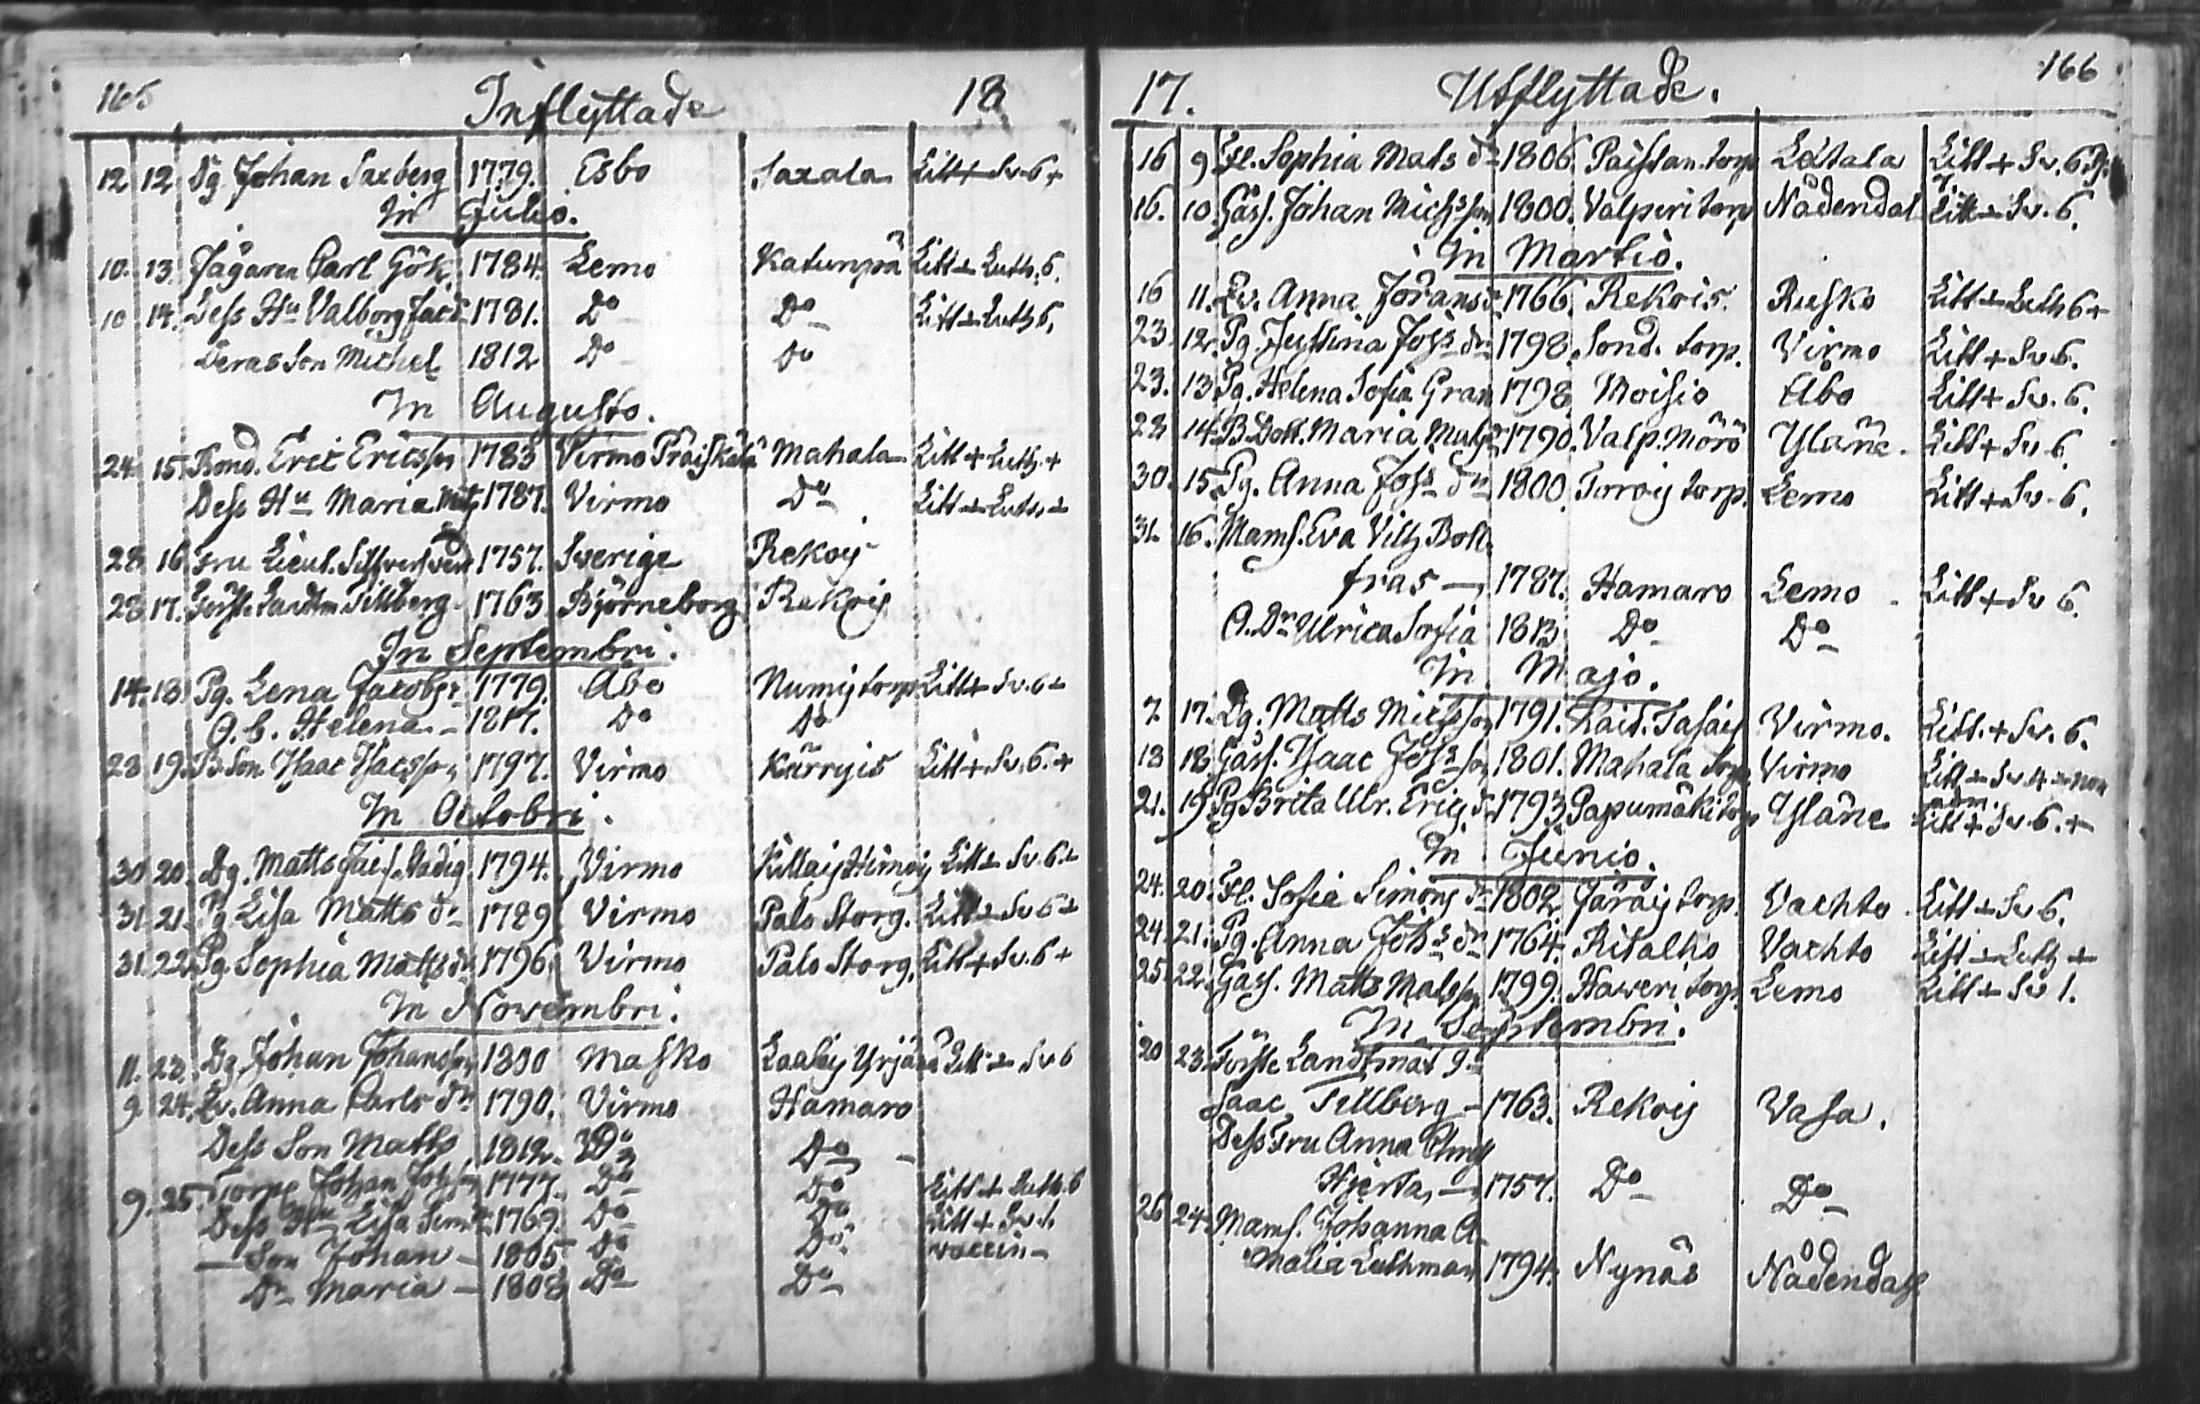 165 Inflyttade 18
12 12 Dg Johan Saxberg 1779. Esbo Saxala Litt + Sv. 6 +
In Julio.
10. 13. Jägaren Carl Gök. 1784. Lemo Katunpä Litt + Luth. 6.
10 14. Dess Hu Valborg Jacs 1781. Do Do Litt + Luth 6.
Deras Son Michel 1812 Do Do
In Augusto.
24. 15. Bond. Eric Ericsson 1783 Virmo Präiskälä Mahala Litt + Luth. +
Dess Hu Maria Matts 1787. Virmo Do Litt + Luth. +
28 16 Fru Lieut. 1757. Sverige Rekoij
28 17. Förste Landtm Tillberg. 1763 Björneborg Rekoij
In Septembri.
14. 18. Pg. Lena Jacobs dr 1779. Åbo Numij torp Litt + Sv. 6 +
O. b. Helena - 1817. Do Do
28 19. B. Son Isaac Isacsson 1797. Virmo Kärryis Litt + Sv. 6. +
In Octobri.
30 20. Dg. Matts Vadig 1794. Virmo Killaij Himoij Litt + Sv 6 +
31. 21. Pg Lisa Matts dr 1789 Virmo Palo Storg. Litt + Sv 6 +
31. 22. Pg. Sophia Matts dr 1796. Virmo Palo Storg. Litt + Sv. 6 +
In Novembri.
11. 23. Dg. Johan Johansson 1800 Masko Laasoij Yrjänä Litt + Sv 6
9 24. Ev. Anna Carls dr 1790. Virmo Hamaro
Dess Son Matts 1812. Do Do -
9. 25. Torpe Johan Johsson 1777. Do Do Litt + Luth. 6
Dess Hu Lisa Sim dr 1769. Do Do Litt + Sv. 1.
— Son Johan - 1805 Do Do vaccin -
Dr Maria - 1808 Do Do
17. Utflyttade. 166
16 9 Fl. Sophia Mats dr 1806 Paistan torp Lextala Litt + Sv. 6. B.
7.
16. 10. Gåss. Johan Michsson 1800. Valperi torp Nådendal Litt + Sv. 6.
In Martio.
16 11. Ev. Anna Johans dr 1766. Rekois. Rusko Litt + Luth 6 +
23 12. Pg. Justina Johs dr 1798. Sond. torp. Virmo Litt + Sv 6.
23. 13 Pg. Helena Sofia Gran 1798. Moisio Åbo Litt + Sv. 6.
23 14. B. Dott. Maria Mats dr 1790. Valp. Mörö Yläne. Litt + Sv. 6.
30. 15. Pg. Anna Johs dr 1800. Toroij torp. Lemo Litt + Sv. 6.
31. 16. Mams. Eva Vilh. Bolt
fras — 1787. Hamaro Lemo. Litt + Sv 6.
O. Dr Ulrica Sofia 1813 Do Do
In Majo.
7. 17. Dg. Matts Michsson 1791. Lait. Sasaij Virmo. Litt. + Sv. 6.
18 18. Gåss. Isaac Johsson 1801. Mahala torp Virmo Litt + Sv. 4 + non
adm.
21. 19. Pg Brita Ulr. Erics dr 1793. Papumäki torp Yläne Litt + Sv. 6. +
In Junio.
24. 20. Fl. Sofia Simons dr 1802 Järäij torp. Vachto Litt + Sv 6.
24. 21. Pg. Anna Johs dr 1764. Ritalko Vachto Litt + Luth +
25 22. Gåss. Matts Matsson 1799. Haveri torp Lemo Litt + Sv 1.
In Septembri.
20 23. Förste Landtmät gr
Isaac Tillberg - 1763. Rekoij Vasa.
Dess Fru Anna
Hjerta, — 1757. Do Do
26 24. Mams. Johanna A-
malia Luthman 1794. Nynäs Nådendahl